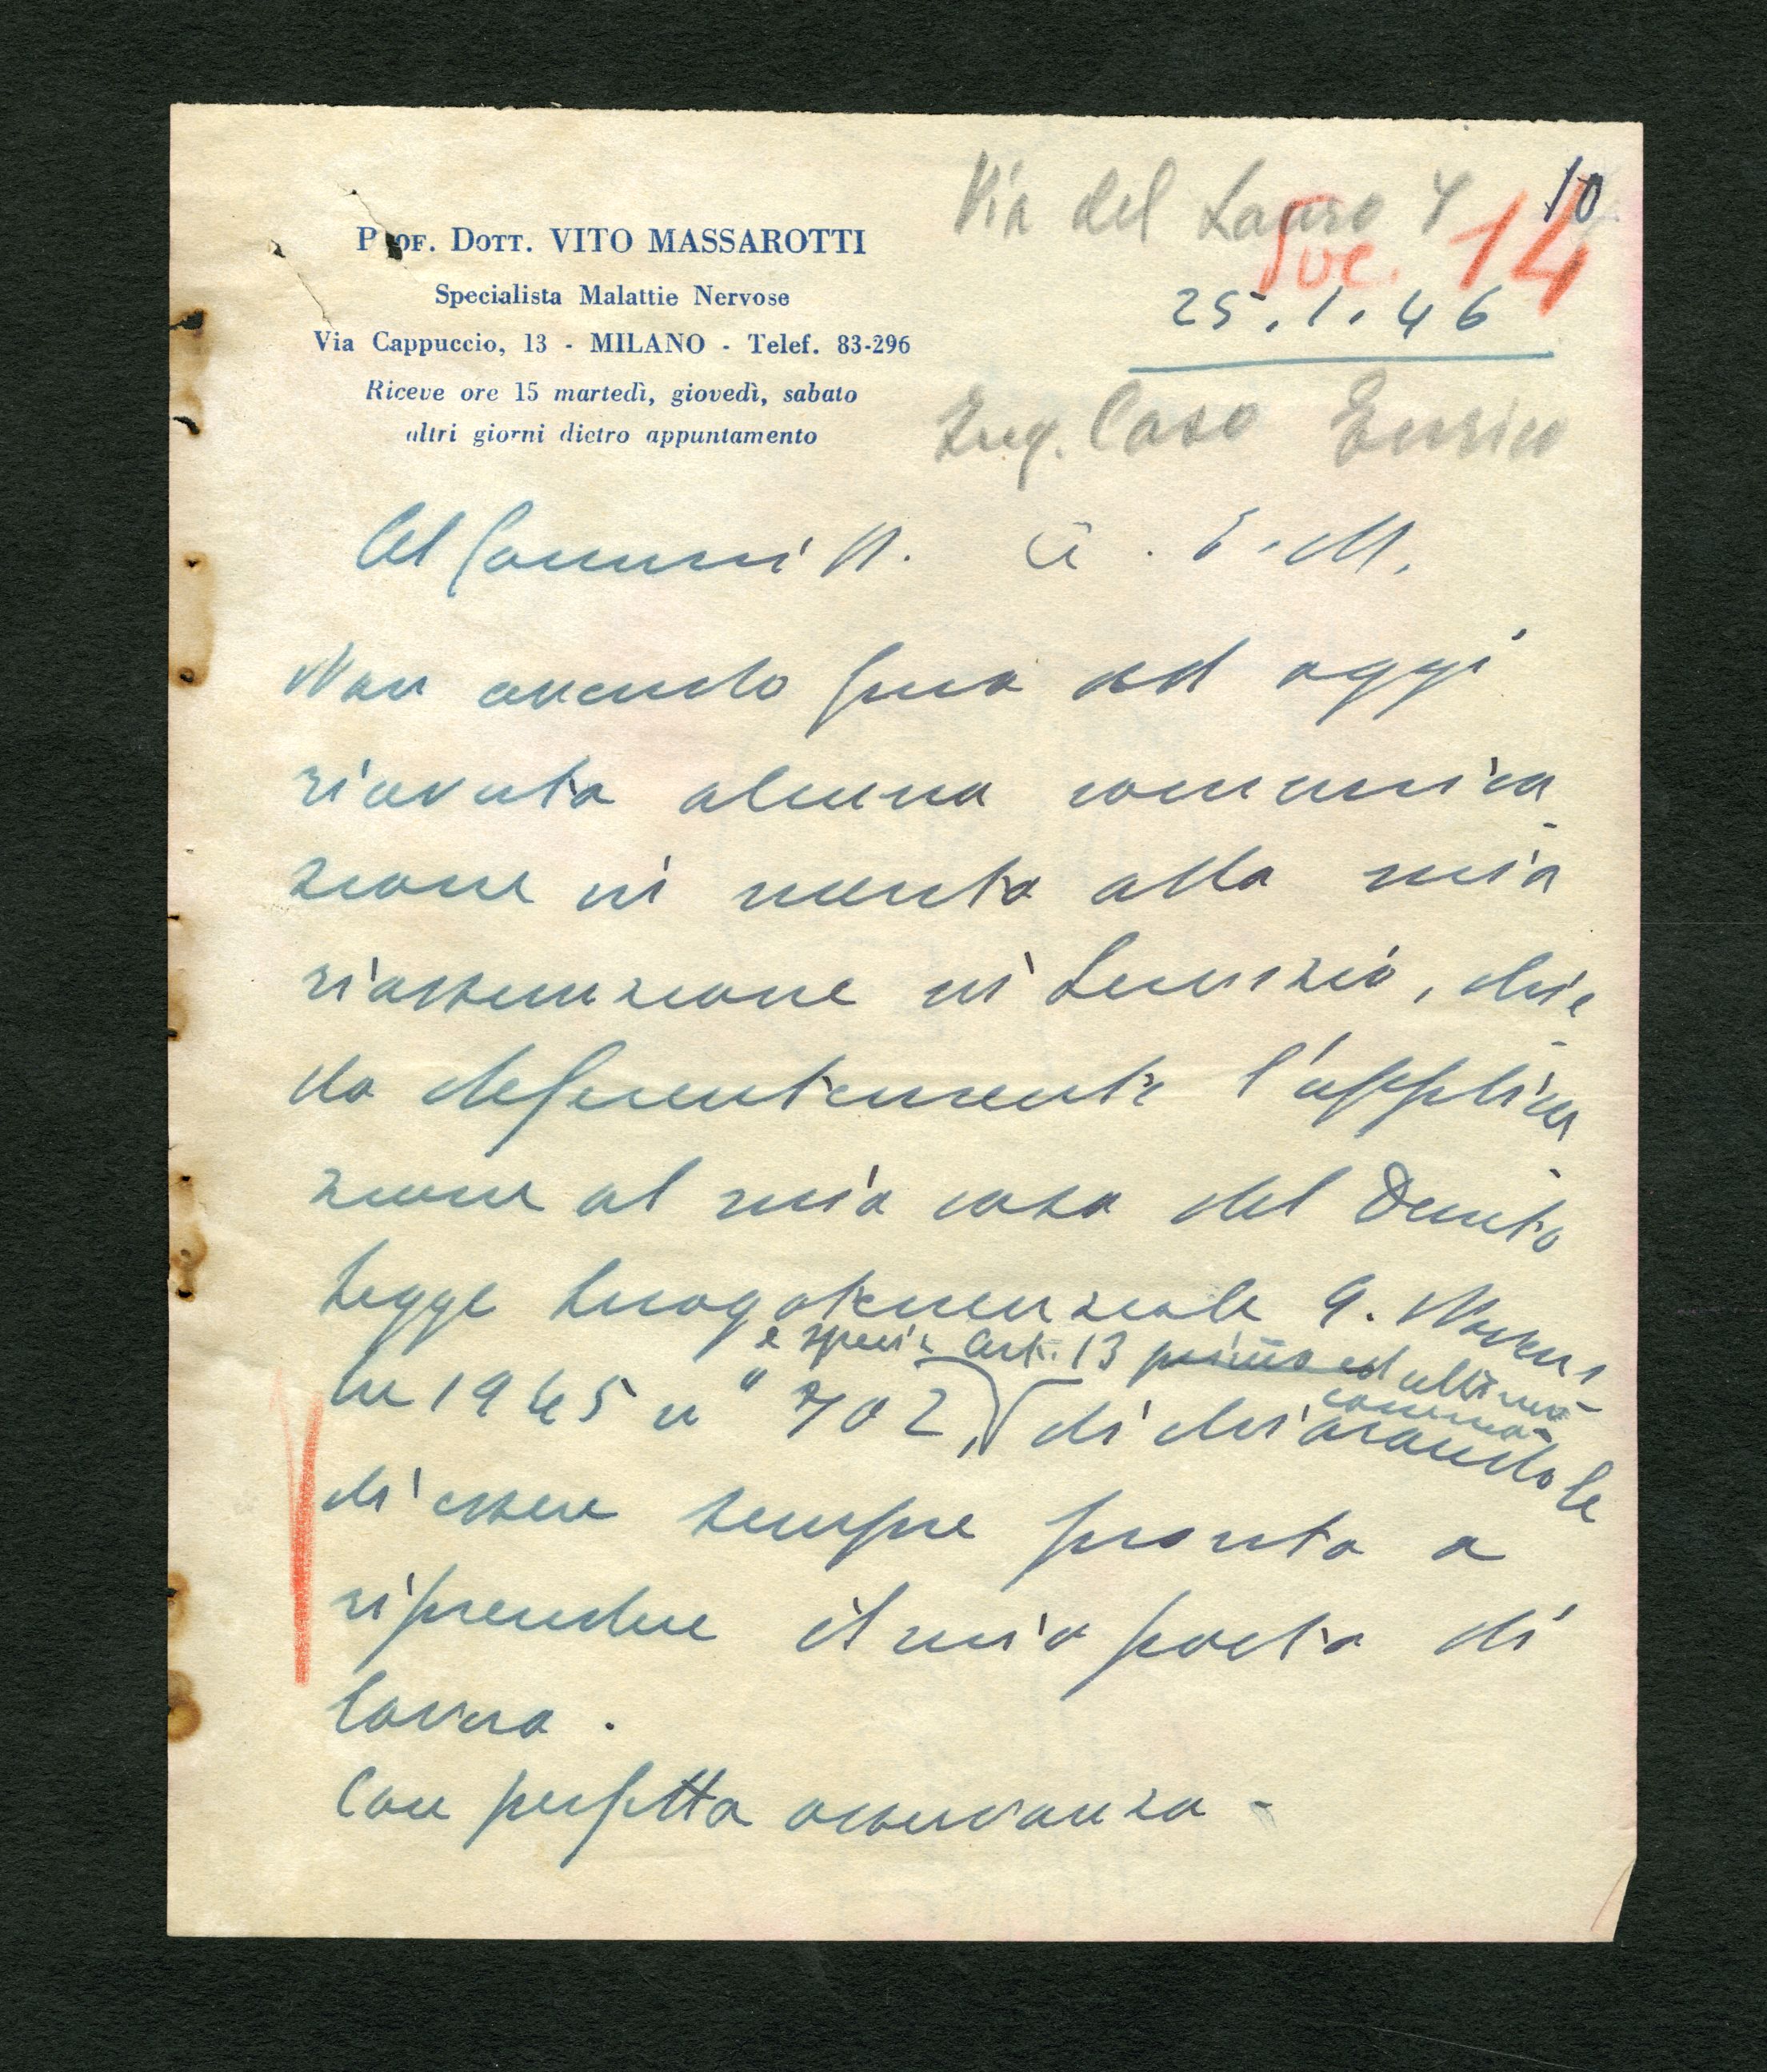 Via del Lauro 4
10
Doc. 14
PROF. DOTT. VITO MASSAROTTI
Specialista Malattie Nervose
Via Cappuccio, 13 - MILANO - Telef. 83-296
Riceve ore 15 martedì, giovedì, sabato
altri giorni dietro appuntamento
25.1.46
Ing. Caso Enrico
Al Commiss. A. E. M.
Non avendo fino ad oggi
ricevuto alcuna comunica-
zione in merito alla mia
riassunzione in servizio, chie-
do deferentemente l'applica-
zione al mio caso del Decreto
Legge Luogotenenziale 9. Novem-
e specie Art. 13 primo ed ultimo
comma
bre 1945 n° 702, dichiarandole
di essere sempre pronto a
riprendere il mio posto di
lavoro.
Con perfetta osservanza -